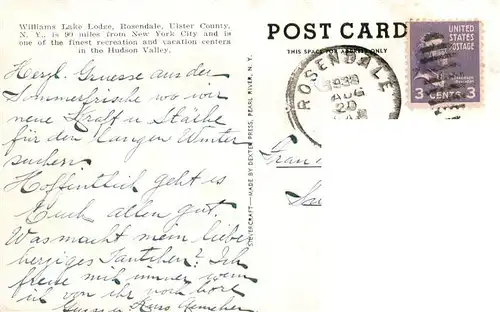 Williams Lake Lodge, Rosendale, Ulster County,
N. Y., is 90 miles from New York City and is
one of the finest recreation and vacation centers
in the Hudson Valley.
Herzl. Gruesse aus der
Sommerfrische wo wir
neue Kraft u Stärke
für den langen Winter
suchen
Hoffentlich geht es
Euch allen gut.
Was macht mein lieber
herziges Tantchen? Ich
freue mich immer wenn
ich von ihr
Gruss u Kuss
SILVERCRAFT—MADE BY DEXTER PRESS, PEARL RIVER, N. Y.
POST CARD
THIS SPACE FOR ADDRESS ONLY
ROSENDALE
1938
AUG
20
UNITED
STATES
POSTAGE
3 CENTS 3